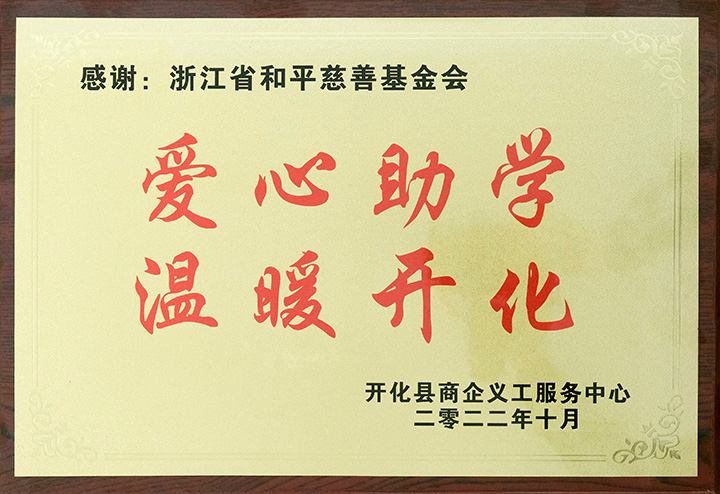 感谢：浙江省和平慈善基金会
爱心助学
温暖开化
开化县商企义工服务中心
二零二二年十月